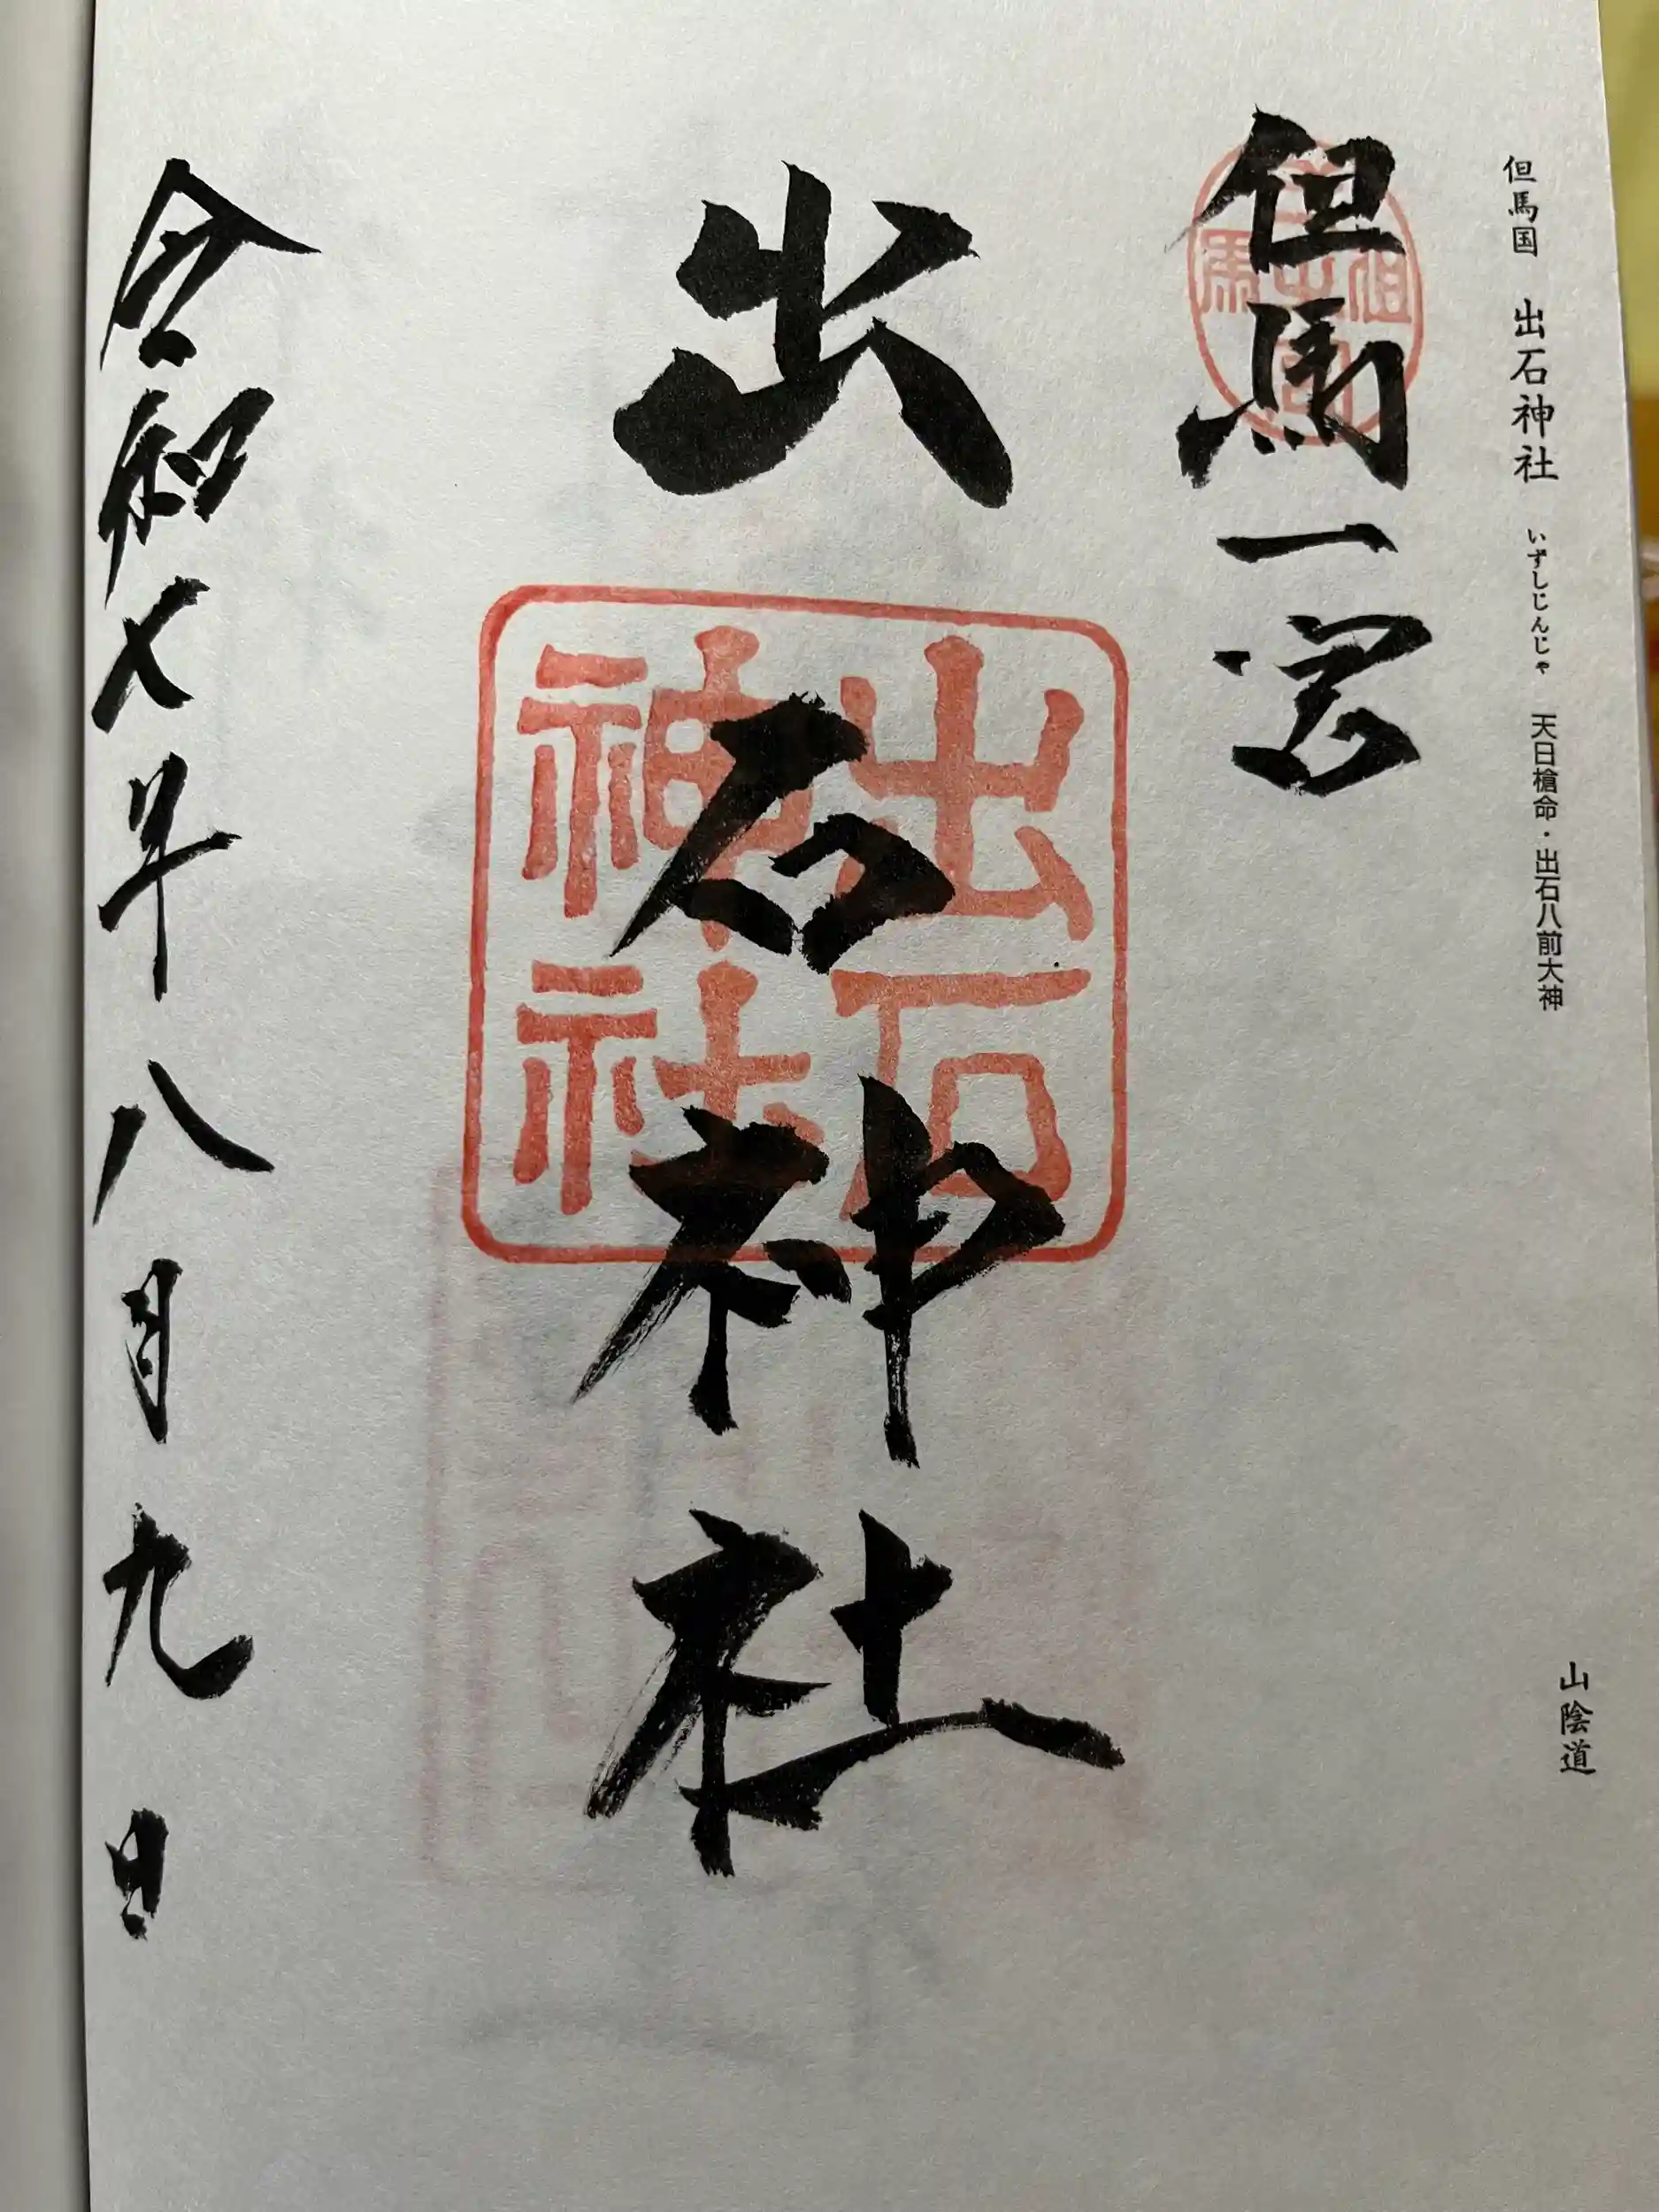 山陰道
但馬国 出石神社 いずしじんじゃ 天日槍命・出石八前大神
但馬一宮
出石神社
出石神社
令和七年八月九日